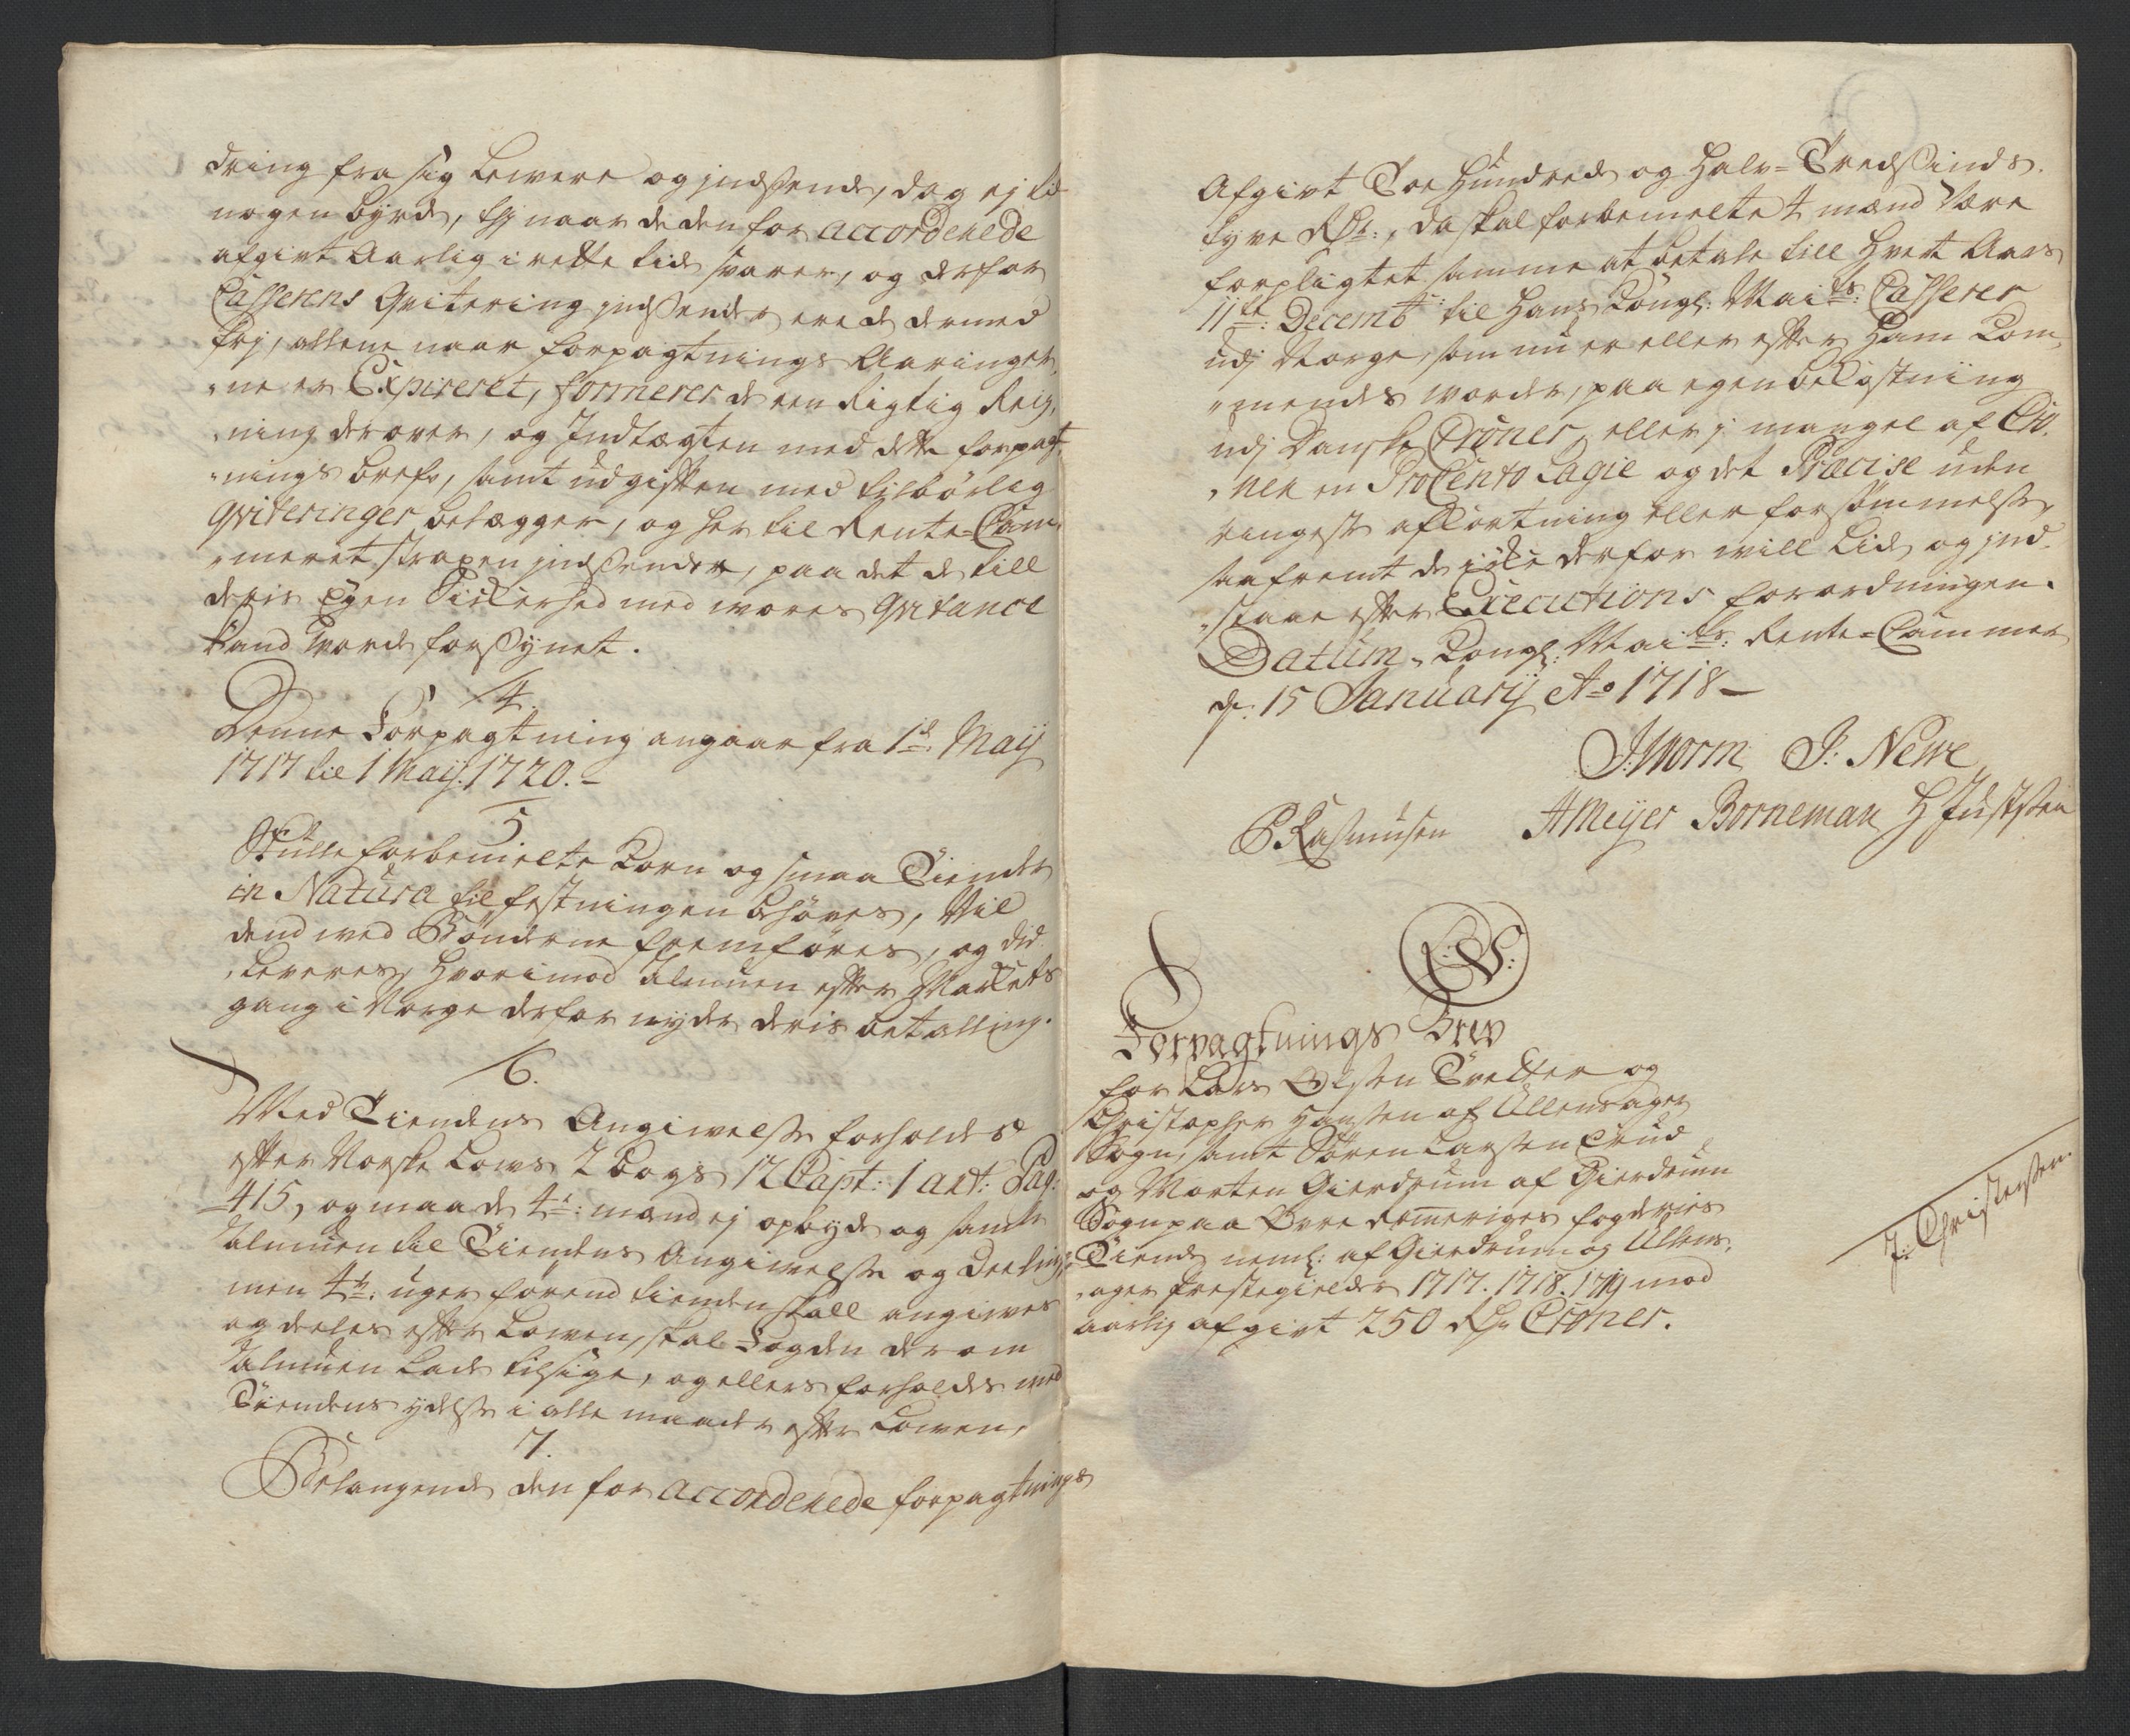 dring fra sig Levere og jndsende, dog ej til
nogen byrde, thj naar de den for accorderede
afgivt Aarlig i rette tid svarer, og derfor
Casserens Qvitering jndsender ere de dermed
frj, allene naar forpagtnings Aaringer,
„ne er Expireret, formerer de een Rigtig Reig,
„ning derover, og Indtægten med dette forpagt,
„nings bref, samt udgiften med tilbörlig
Qviteringer belægger, og her til Rente-Cam,
„meret strapen jndsender, paa det de till
deris Egen Sickerhed med vores Qvitance
kand vorde forsynet.
4.
Denne Forpagtning angaar fra 1d: Maij
1717 til 1 Maij 1720.-
5
Skulle forbemelte Korn og smaa Tiender
in Natura til festningen behöves, Vil
dend med Bönderne fremföres, og did
Leveres, hvorimod Almuen efter Markets
gang i Norge derfor nyder deris betalling.
6.
Med Tiendens Angivelse forholdes
efter Norske Lovs 2 Bogs 12 Capt: 1 art: Pag:
415, og maa de 4re: mænd ej opbyde og samle
Almuen til Tiendens Angivelse og Deeling,
men 4re: uger forend tienden skall angives
og deeles efter Loven, skal Fogden derom
Almuen lade tilsige, og ellers forholdes med
Tiendens ydelse i alle maader efter Loven,
7.
Belangende den for accorderede forpagtnings
Afgivt Toe Hundrede og Halv-Tredsinds
tyve Rdr:, da skal forbemelte 4 mænd være
forpligtet samme at betale till hvert Aars
11te: Decembr: til Hans Kongl: Maits: Casserer
udj Norge, som nu er eller efter Ham Kom,
„mendes worder, paa egen bekostning
udj Danske Croner, eller j mangel af Cro,
„ner en ProCento Lagie og det Præcise uden
ringeste afkortning eller forsömmelse,
saafremt de icke derfor will Lide og jnd,
„staae efter Executions forordningen.
Datum, Kongl: Maits: Rente-Cammer
d: 15 Januarij Ao 1718-
J: Worm J: Newe
P Rasmusen HMeijer Borneman H Justsen
L: S:
Forpagtnings Brev
for Lars Olsen Tvetter og
Christopher Hansen af Ullensager
Sogn, samt Sören Larsen Crud
og Morten Gierdrum af Gierdrum
Sogn paa Övre Romeriges fogderies
Tiende neml: af Gierdrum og Ullens,
„ager Prestegielder 1717. 1718. 1719 mod
aarlig afgivt 250 Rdr Croner.
J: Christensen.